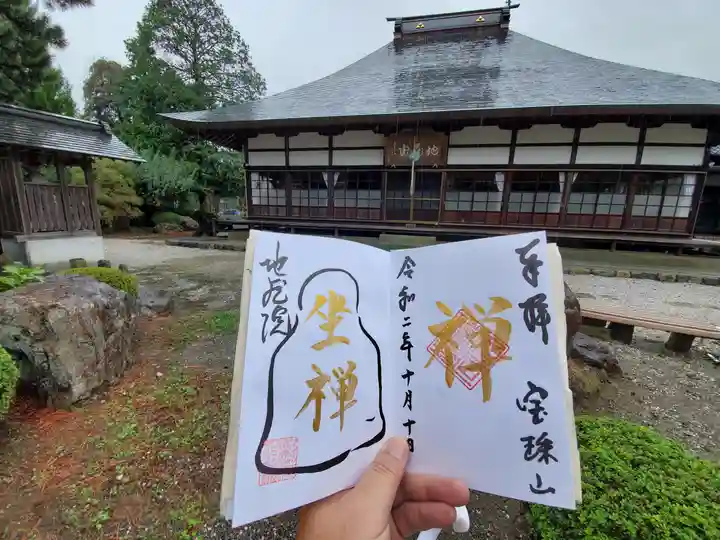 奉拝
宝珠山
禅
令和二年十月十日
坐禅
地蔵院